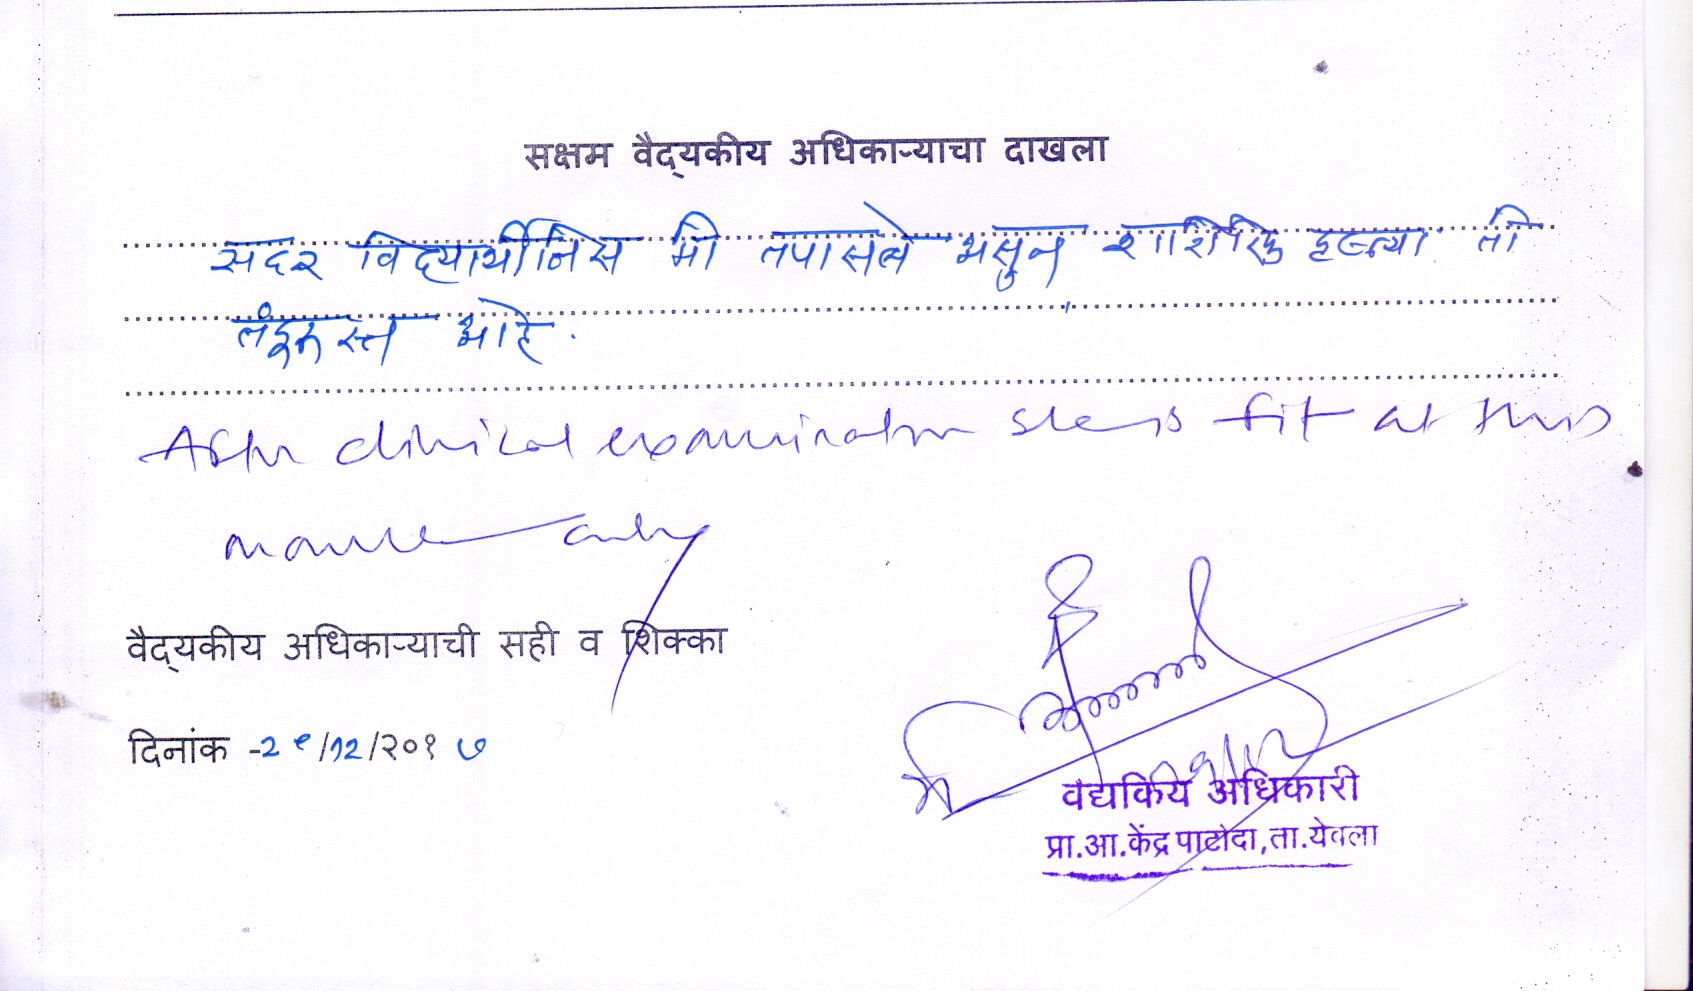 सक्षम वैद्यकीय अधिकाऱ्याचा दाखला
सदर विद्यार्थीनिस मी तपासले असुन शारिरिक दृष्ट्या ती
तंदुरुस्त आहे.
After clinical examination she is fit at this
only
वैद्यकीय अधिकाऱ्याची सही व शिक्का
दिनांक -२९/१२/२०१७
वैद्यकिय अधिकारी
प्रा.आ.केंद्र पाटोदा,ता.येवला